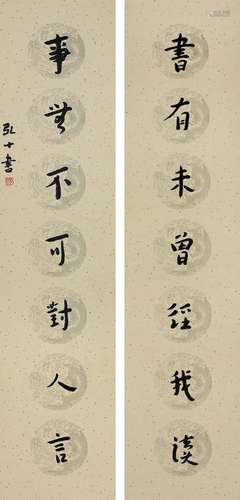 書有未曾經我讀
事無不可對人言
弘十書